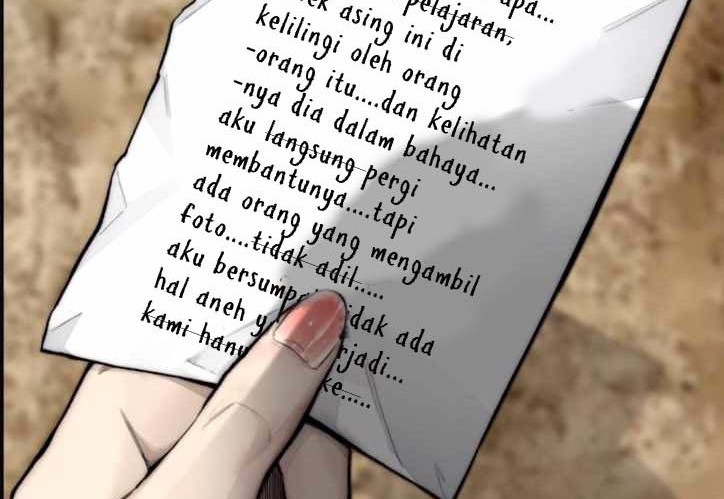 apa...
pelajaran,
asing ini di
kelilingi oleh orang
-orang itu....dan kelihatan
-nya dia dalam bahaya...
aku langsung pergi
membantunya....tapi
ada orang yang mengambil
foto....tidak adil.....
aku bersumpah tidak ada
hal aneh y rjadi...
kami hany ke.....